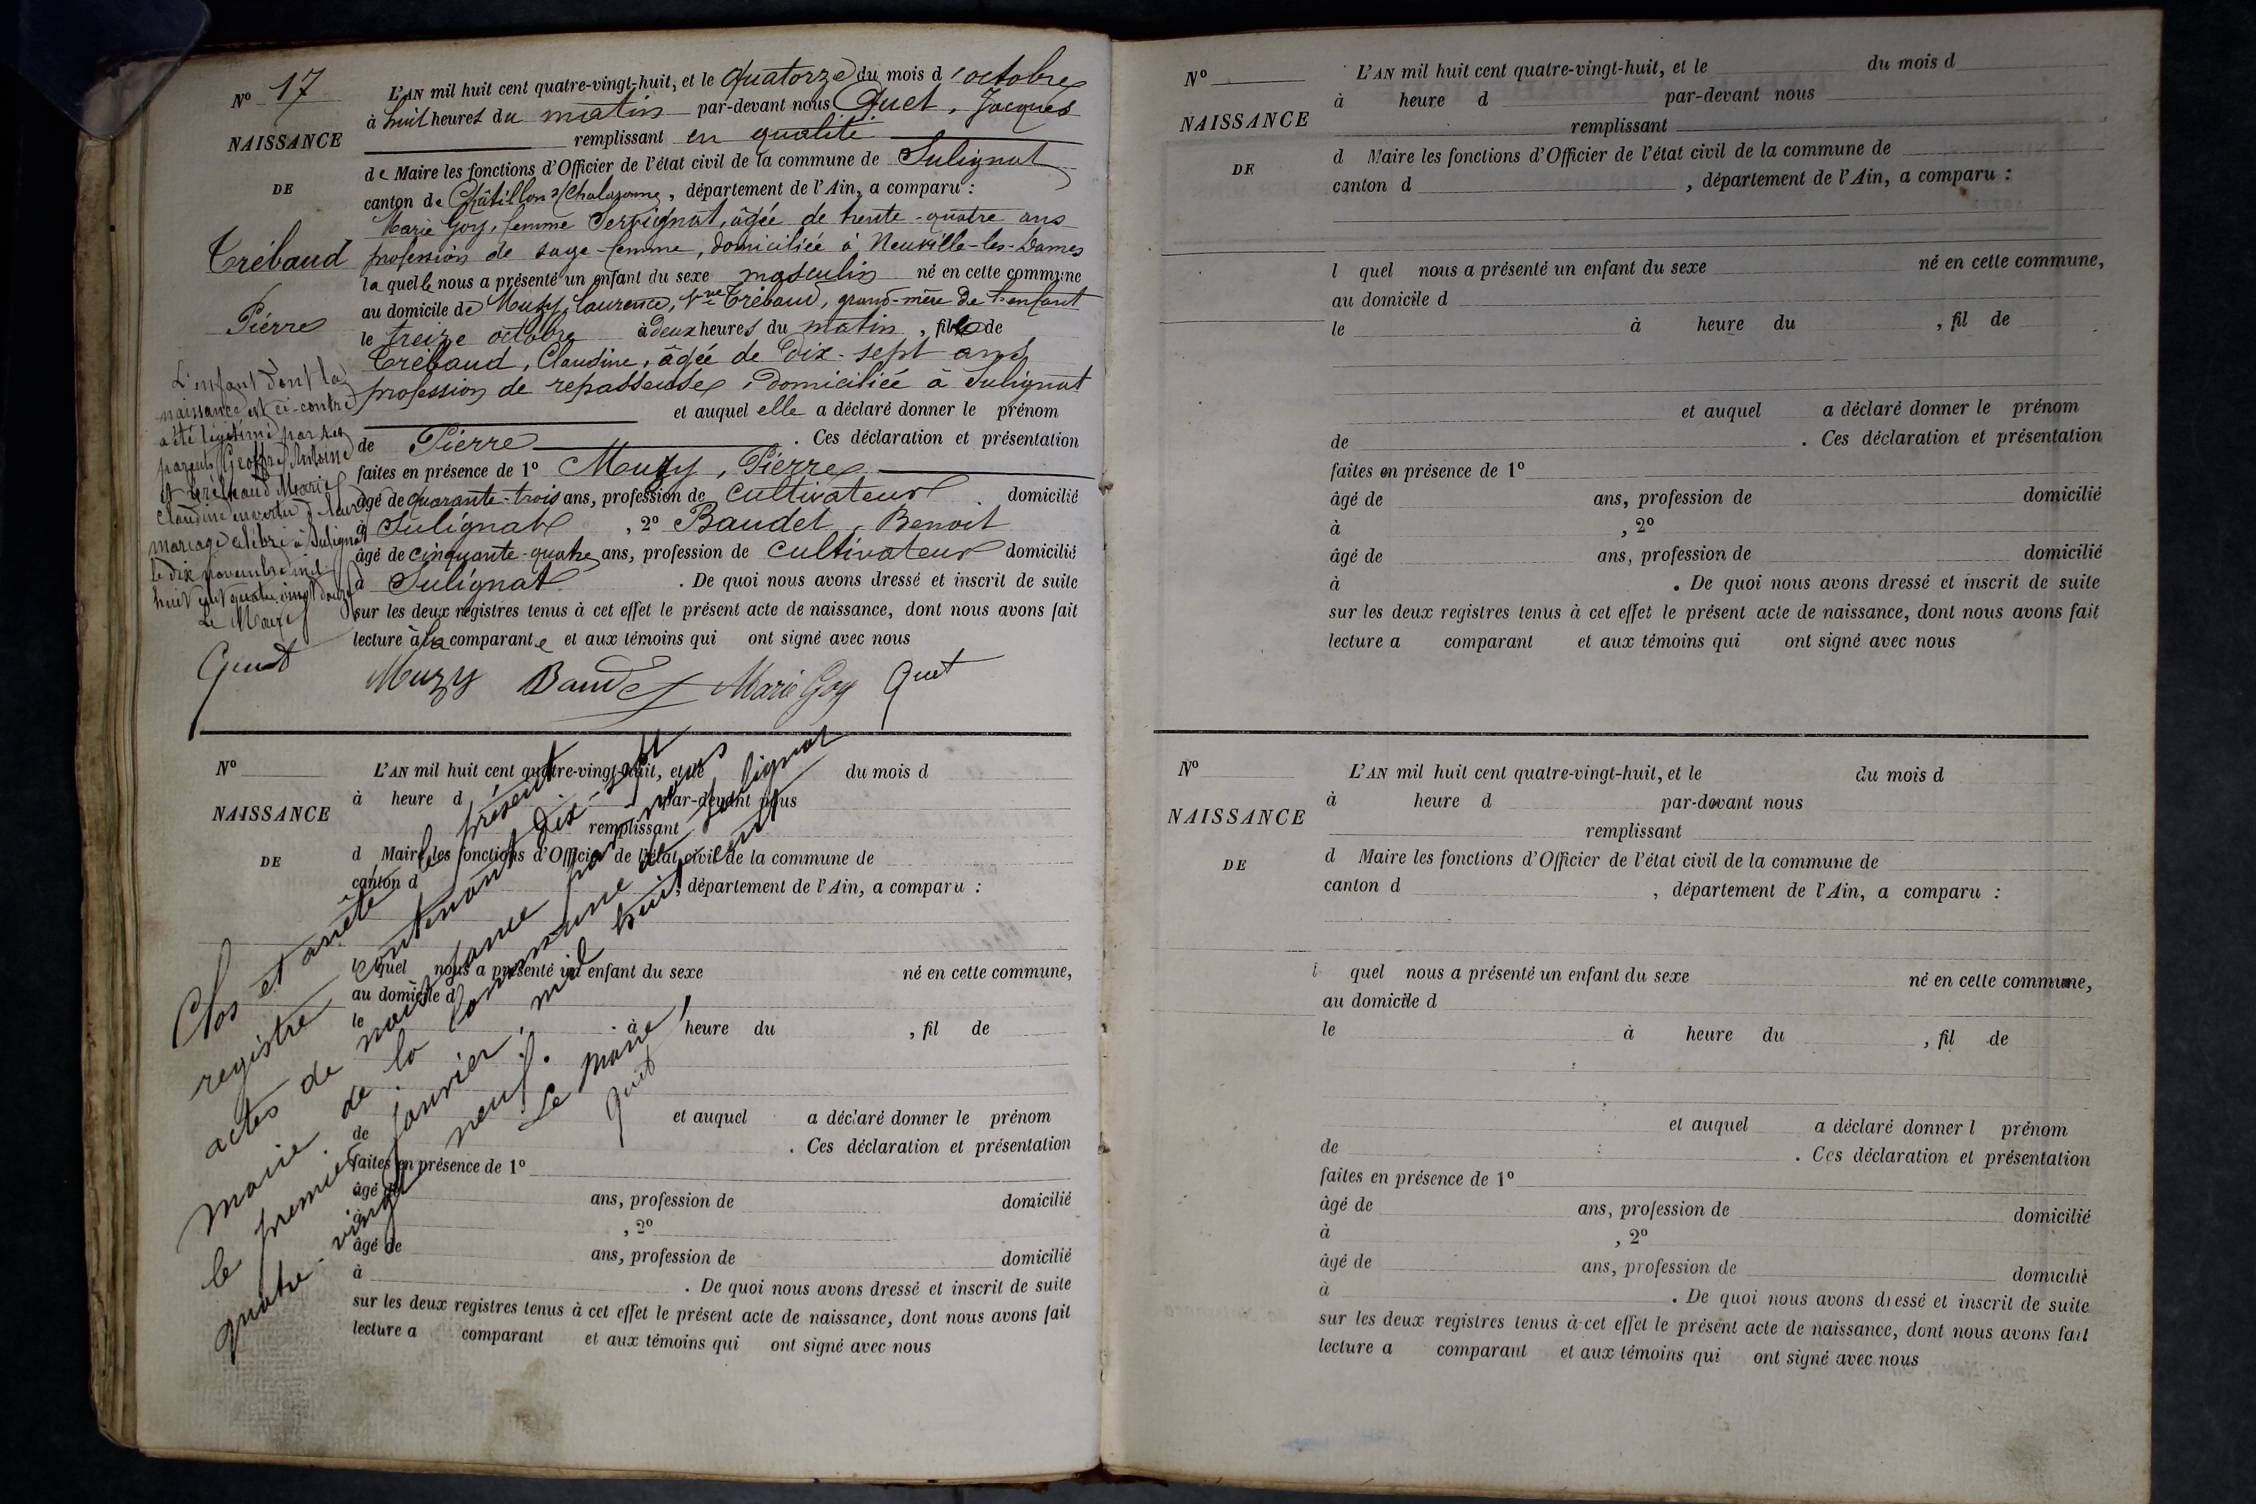 N° 17
NAISSANCE
DE
Trébaud
Pierre
L'AN mil huit cent quatre-vingt-huit, et le quatorze du mois d'octobre
à huit heures du matin par-devant nous Quet, Jacques
remplissant en qualité
de Maire les fonctions d'Officier de l'état civil de la commune de Sulignat
canton de Châtillon s/Chalaronne, département de l'Ain, a comparu :
Marie Goy, femme Servignat, âgée de trente-quatre ans
profession de sage-femme, domiciliée à Neuville-les-Dames
laquelle nous a présenté un enfant du sexe masculin né en cette commune
au domicile de Muzy, Laurence, Vve Trébaud, grand-mère de l'enfant
le treize octobre à deux heures du matin, fils de
Trébaud, Claudine, âgée de dix-sept ans,
profession de repasseuse, domiciliée à Sulignat
et auquel elle a déclaré donner le prénom
de Pierre . Ces déclaration et présentation
faites en présence de 1° Muzy, Pierre
âgé de quarante-trois ans, profession de cultivateur, domicilié
à Sulignat, 2° Baudet, Benoit
âgé de cinquante-quatre ans, profession de cultivateur domicilié
à Sulignat . De quoi nous avons dressé et inscrit de suite
sur les deux registres tenus à cet effet le présent acte de naissance, dont nous avons fait
lecture à la comparante et aux témoins qui ont signé avec nous
Muzy Baudet Marie Goy Quet
L'enfant dont la
naissance est ci-contre
a été légitimé par ses
parents Geoffray Antoine
et Trébaud Marie
Claudine en vertu de leur
mariage célébré à Sulignat
le dix novembre mil
huit cent quatre vingt douze
Le Maire
Quet
N°
NAISSANCE
DE
L'AN mil huit cent quatre-vingt-huit, et le du mois d
à heure d par-devant nous
remplissant
d Maire les fonctions d'Officier de l'état civil de la commune de
canton d , département de l'Ain, a comparu :
l quel nous a présenté un enfant du sexe né en cette commune,
au domicile d
le à heure du , fil de
et auquel a déclaré donner le prénom
de . Ces déclaration et présentation
faites en présence de 1°
âgé de ans, profession de domicilié
à , 2°
âgé de ans, profession de domicilié
à . De quoi nous avons dressé et inscrit de suite
sur les deux registres tenus à cet effet le présent acte de naissance, dont nous avons fait
lecture a comparant et aux témoins qui ont signé avec nous
Clos et arrêté le présent
registre contenant dix-sept
actes de naissance par nous
maire de la commune de Sulignat
le premier janvier, mil huit cent
quatre-vingt neuf.
Le Maire,
Quet
N°
NAISSANCE
DE
L'AN mil huit cent quatre-vingt-huit, et le du mois d
à heure d par-devant nous
remplissant
d Maire les fonctions d'Officier de l'état civil de la commune de
canton d , département de l'Ain, a comparu :
l quel nous a présenté un enfant du sexe né en cette commune,
au domicile d
le à heure du , fil de
et auquel a déclaré donner le prénom
de . Ces déclaration et présentation
faites en présence de 1°
âgé de ans, profession de domicilié
à , 2°
âgé de ans, profession de domicilié
à . De quoi nous avons dressé et inscrit de suite
sur les deux registres tenus à cet effet le présent acte de naissance, dont nous avons fait
lecture a comparant et aux témoins qui ont signé avec nous
N°
NAISSANCE
DE
L'AN mil huit cent quatre-vingt-huit, et le du mois d
à heure d par-devant nous
remplissant
d Maire les fonctions d'Officier de l'état civil de la commune de
canton d , département de l'Ain, a comparu :
l quel nous a présenté un enfant du sexe né en cette commune,
au domicile d
le à heure du , fil de
et auquel a déclaré donner l prénom
de . Ces déclaration et présentation
faites en présence de 1°
âgé de ans, profession de domicilié
à , 2°
âgé de ans, profession de domicilié
à . De quoi nous avons dressé et inscrit de suite
sur les deux registres tenus à cet effet le présent acte de naissance, dont nous avons fait
lecture a comparant et aux témoins qui ont signé avec nous